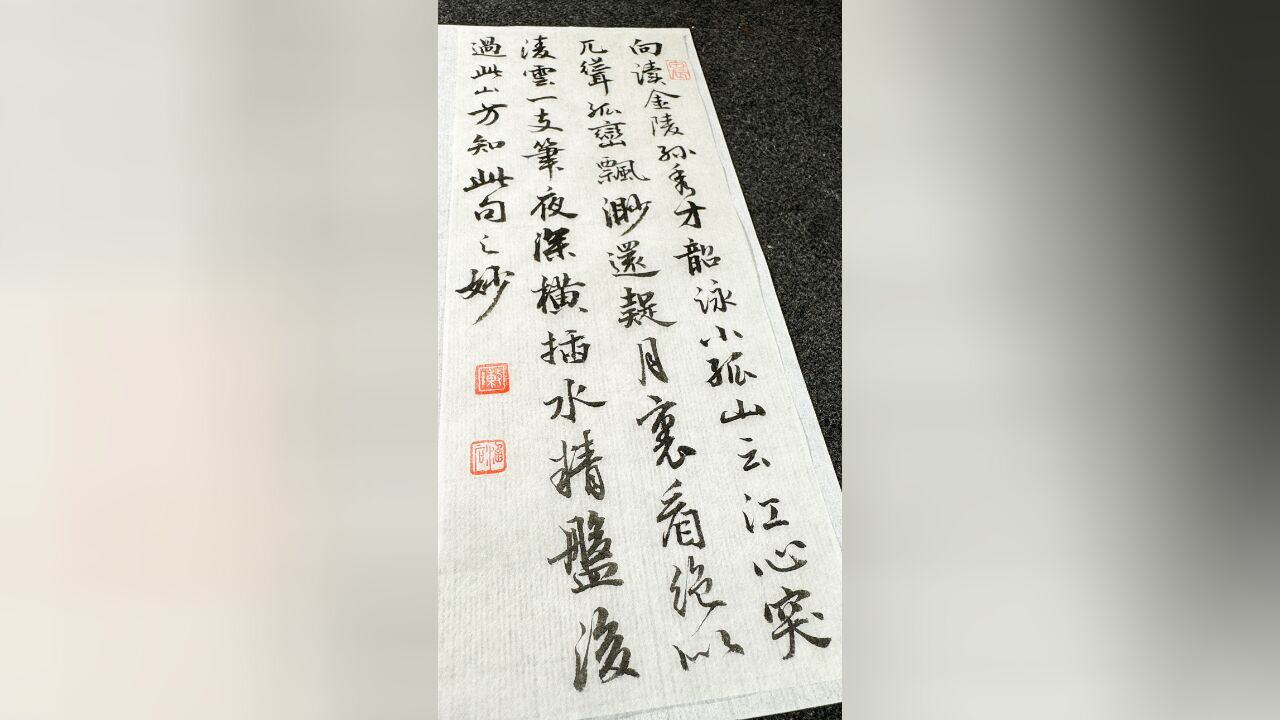 向读金陵孙秀才韶泳小孤山云江心突
兀聳孤巒飄渺還疑月裏看絶似
凌雲一支筆夜深横插水精盤後
過此山方知此句之妙